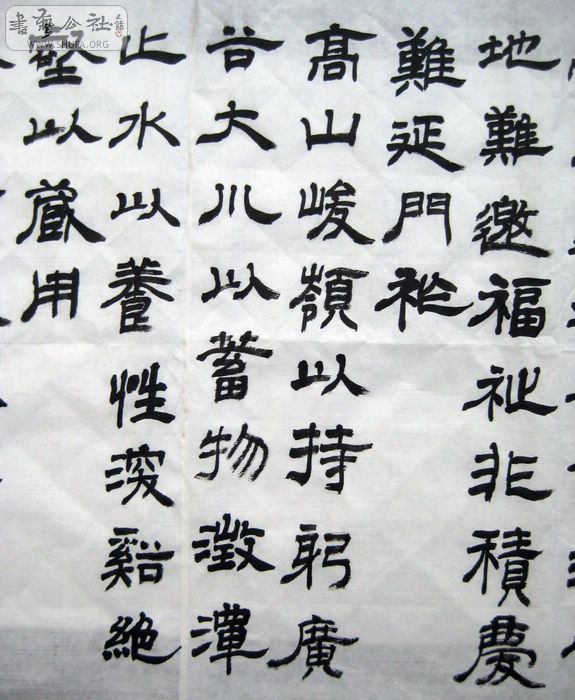 地難邀福祉非積慶
難延門祚
高山峻嶺以持躬廣
谷大川以蓄物澂潭
止水以養性深谿絶
壑以蔵用
書法公社
WWW.SHUFA.ORG